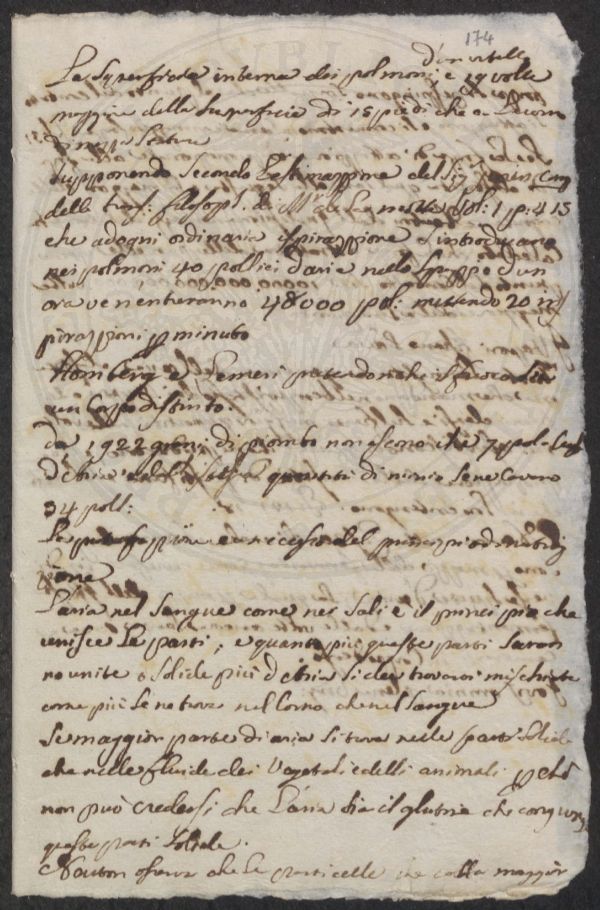 174
d'un vitello
La Superficie interna dei polmoni e 19 volte
maggiore della Superficie di 15 piedi che a L'uomo
di mezza Statura
Supponendo Secondo l'estimazzione del Sig. Jurin
delle trans: filosof. di Mr. de La motte Vol: 1 p: 415
che ad ogni ordinaria ispirazzione s'introducano
nei polmoni 40 pollici d'aria nello Spazzo d'un
ora ve n'entreranno 48000 pol: mettendo 20 ins
pirazzioni p minuto
Homberg e Lemeri pretendono che il fuoco Sia
un Corpo distinto.
da 1922 grani di piombo non escono che 7 pol. Cub
d'aria quantità di minio Se ne Cavano
34 poll:
La e un eccesso del principio di nutriz
zione
L'aria nel Sangue come nei Sali e il principio che
unisce Le parti, e quanto più queste parti Saran
no unite e Solide più d'aria Si dee trovarvi mischiata
come più Se ne trova nel Corno che nel Sangue
Se maggior parte di aria Si trova nelle parti Solide
che nelle fluide dei Vegetali e delli animali pchè
non può credersi che L'aria Sia il glutine che congiunge
queste parti Solide.
Neuton osserva che Le particelle che colla maggior